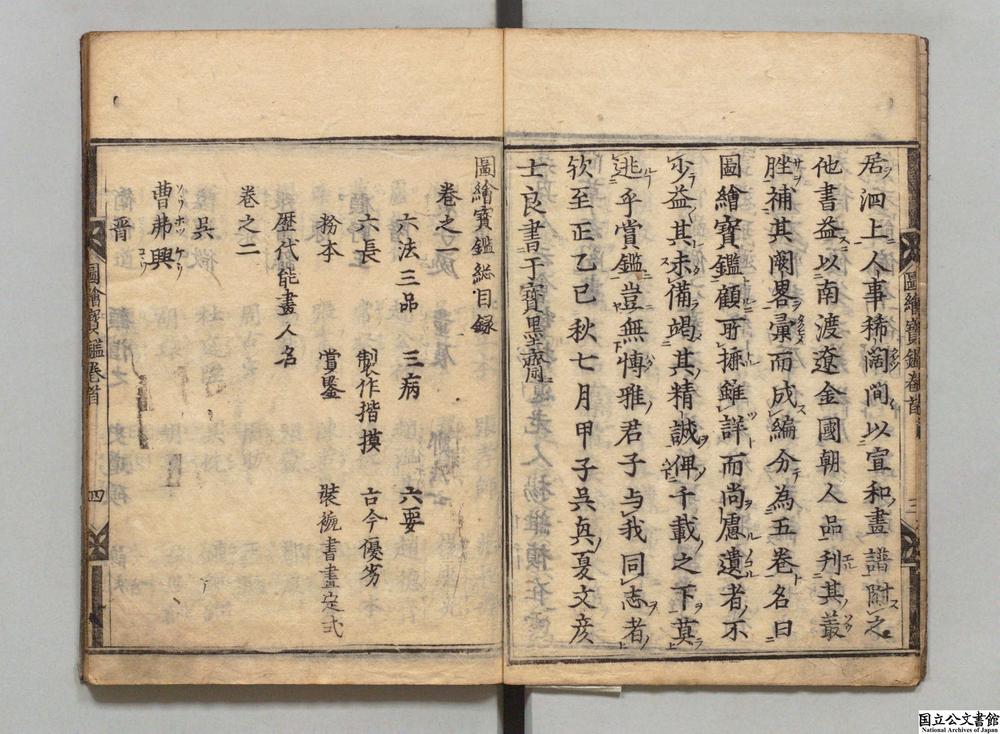 居泗上人事稀闊間以宣和畫譜附之
他書益以南渡遼金國朝人品刋其叢
脞補其闕畧彙而成編分為五卷名曰
圖繪寶鑑顧所摭雖詳而尚慮遺者不
少益其未備竭其精誠俾千載之下莫
逃乎賞鑑豈無慱雅君子与我同志者
欤至正乙巳秋七月甲子吳真夏文彦
士良書于寶墨齋
圖繪寶鑑卷首
三
圖繪寶鑑総目録
卷之一
六法三品 三病 六要
六長 製作揩摸 古今優劣
粉本 賞鑒 裝褫書畫定式
歴代能畫人名
卷之二
吳
曹弗興
晋
圖繪寶鑑卷首
四
国立公文書館
National Archives of Japan